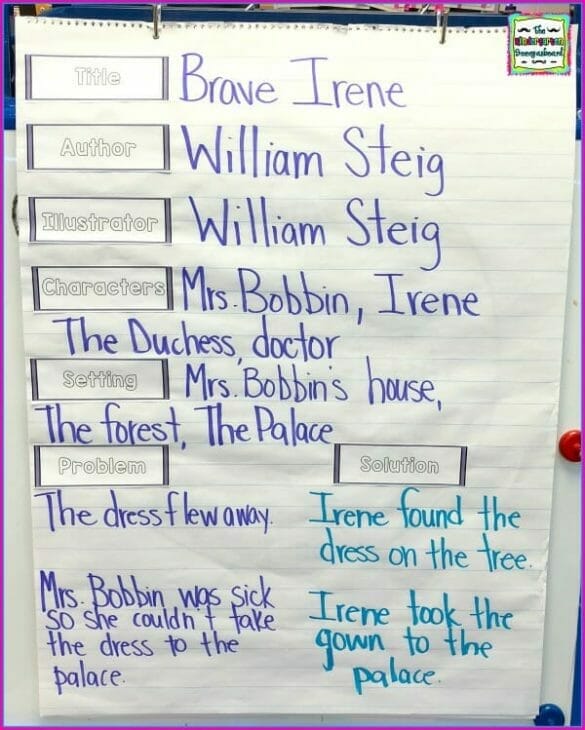 The
Kindergarten
Smorgasboard
Title Brave Irene
Author William Steig
Illustrator William Steig
Characters Mrs. Bobbin, Irene
The Duchess, doctor
Setting Mrs. Bobbin's house,
The forest, The Palace
Problem Solution
The dress flew away. Irene found the
dress on the tree.
Mrs. Bobbin was sick Irene took the
so she couldn't take gown to the
the dress to the palace.
palace.